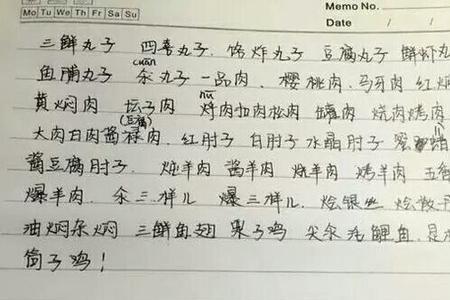 Memo No.
Mo Tu We Th Fr Sa Su
Date / /
三鲜丸子 四喜丸子、饹炸丸子 豆腐丸子 鲜虾丸
鱼脯丸子 汆丸子 一品肉、樱桃肉、马牙肉 红焖
cuān
黄焖肉 坛子肉 烀肉扣肉松肉 罐肉 烧肉烤肉
(豆腐)
大肉白肉酱禄肉、红肘子 白肘子 水晶肘子 蜜蜡
酱豆腐肘子、炖羊肉 酱羊肉 烧羊肉 烤羊肉 五香
爆羊肉、汆三样儿 爆三样儿、烩银丝 烩散丹
油焖杂焖 三鲜鱼翅 栗子鸡 尖汆活鲤鱼、是
筒子鸡！